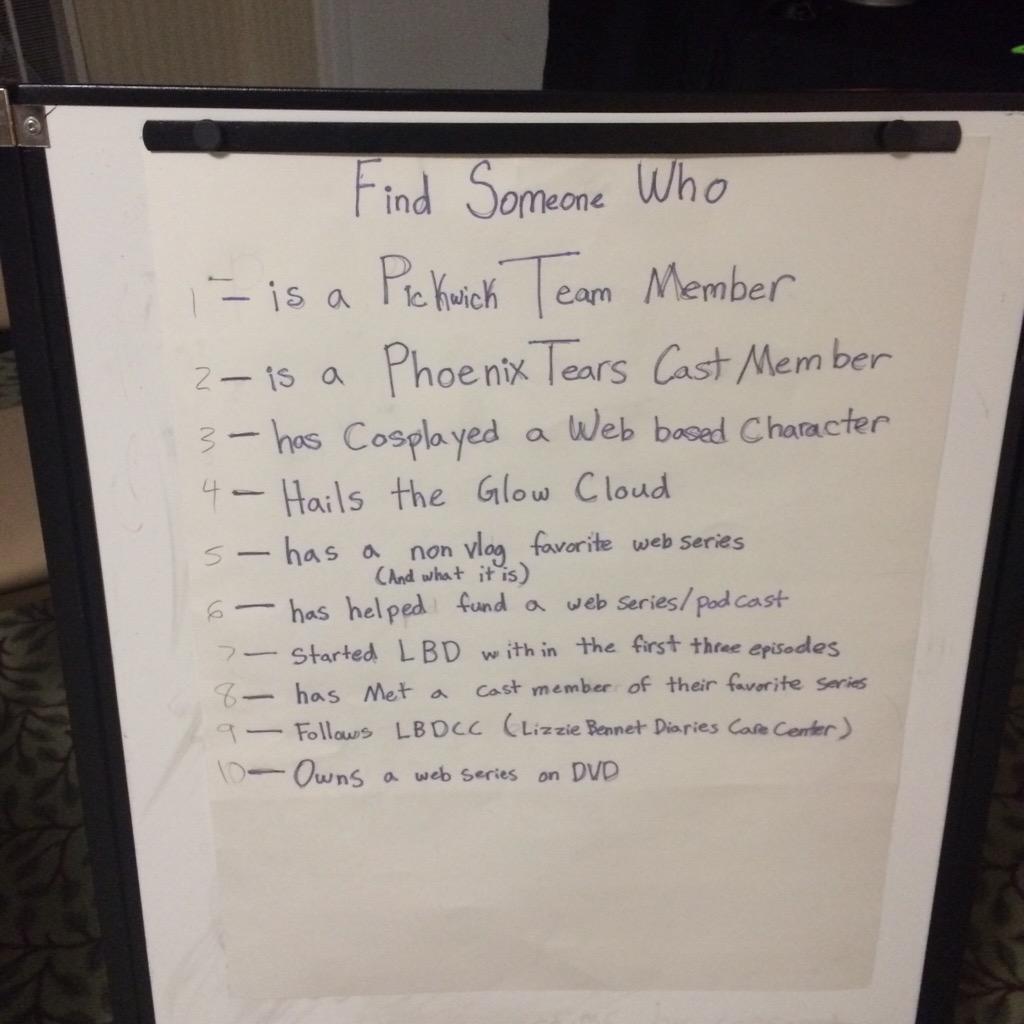 Find Someone Who
1 — is a Pickwick Team Member
2 — is a Phoenix Tears Cast Member
3 — has Cosplayed a Web based Character
4 — Hails the Glow Cloud
5 — has a non vlog favorite web series
(And what it is)
6 — has helped fund a web series/podcast
7 — Started LBD within the first three episodes
8 — has Met a cast member of their favorite series
9 — Follows LBDCC (Lizzie Bennet Diaries Care Center)
10 — Owns a web series on DVD